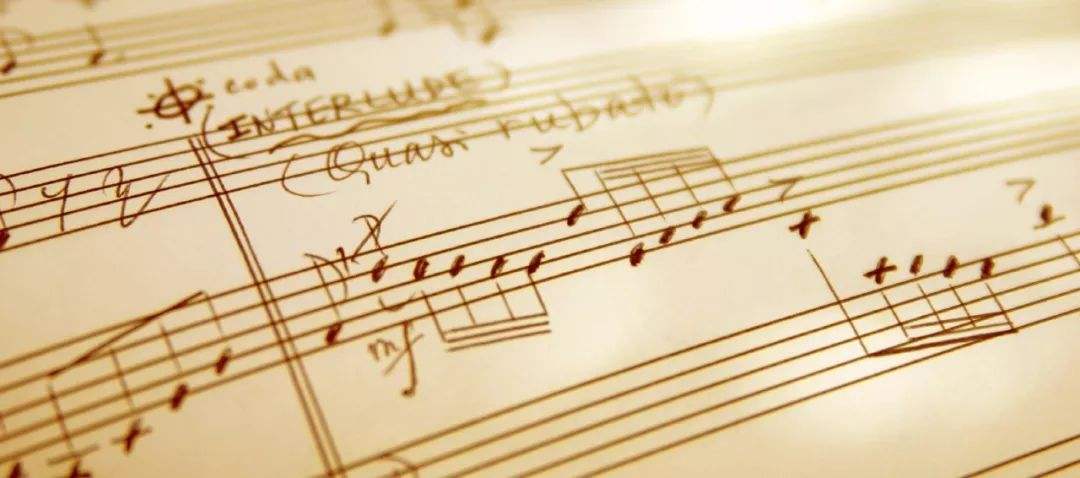 coda
(INTERLUDE)
(Quasi rubato)
mf